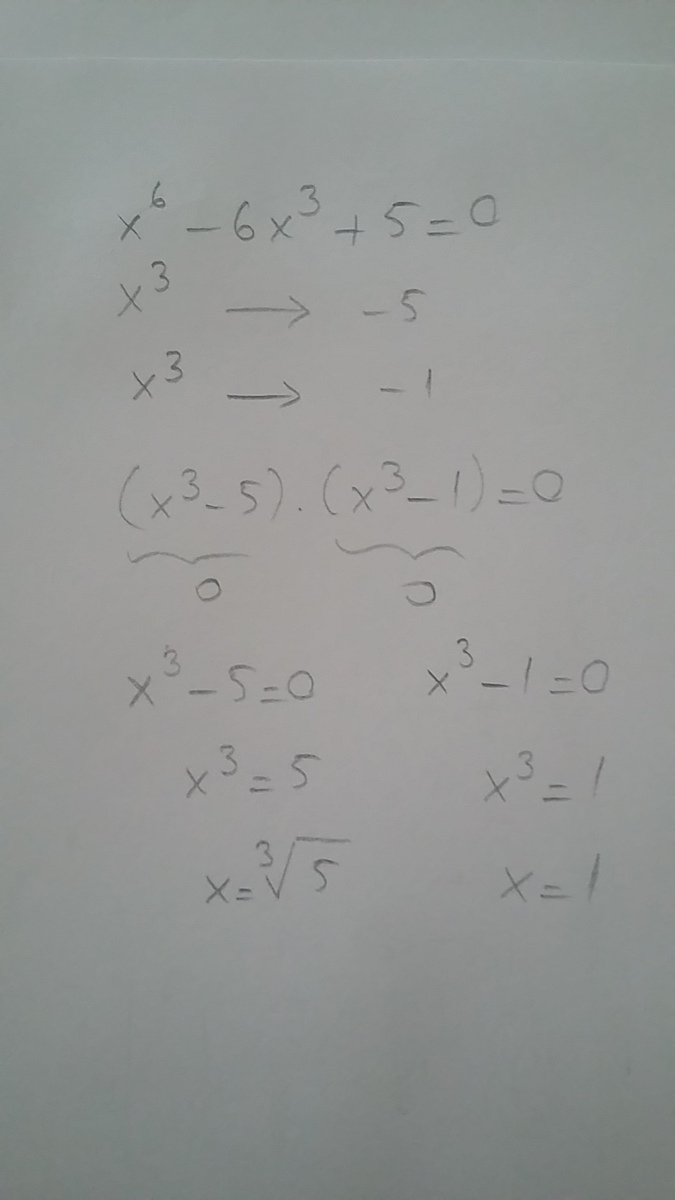 x⁶ - 6x³ + 5 = 0
x³ → -5
x³ → -1
(x³ - 5) . (x³ - 1) = 0
0 0
x³ - 5 = 0 x³ - 1 = 0
x³ = 5 x³ = 1
x = ³√5 x = 1